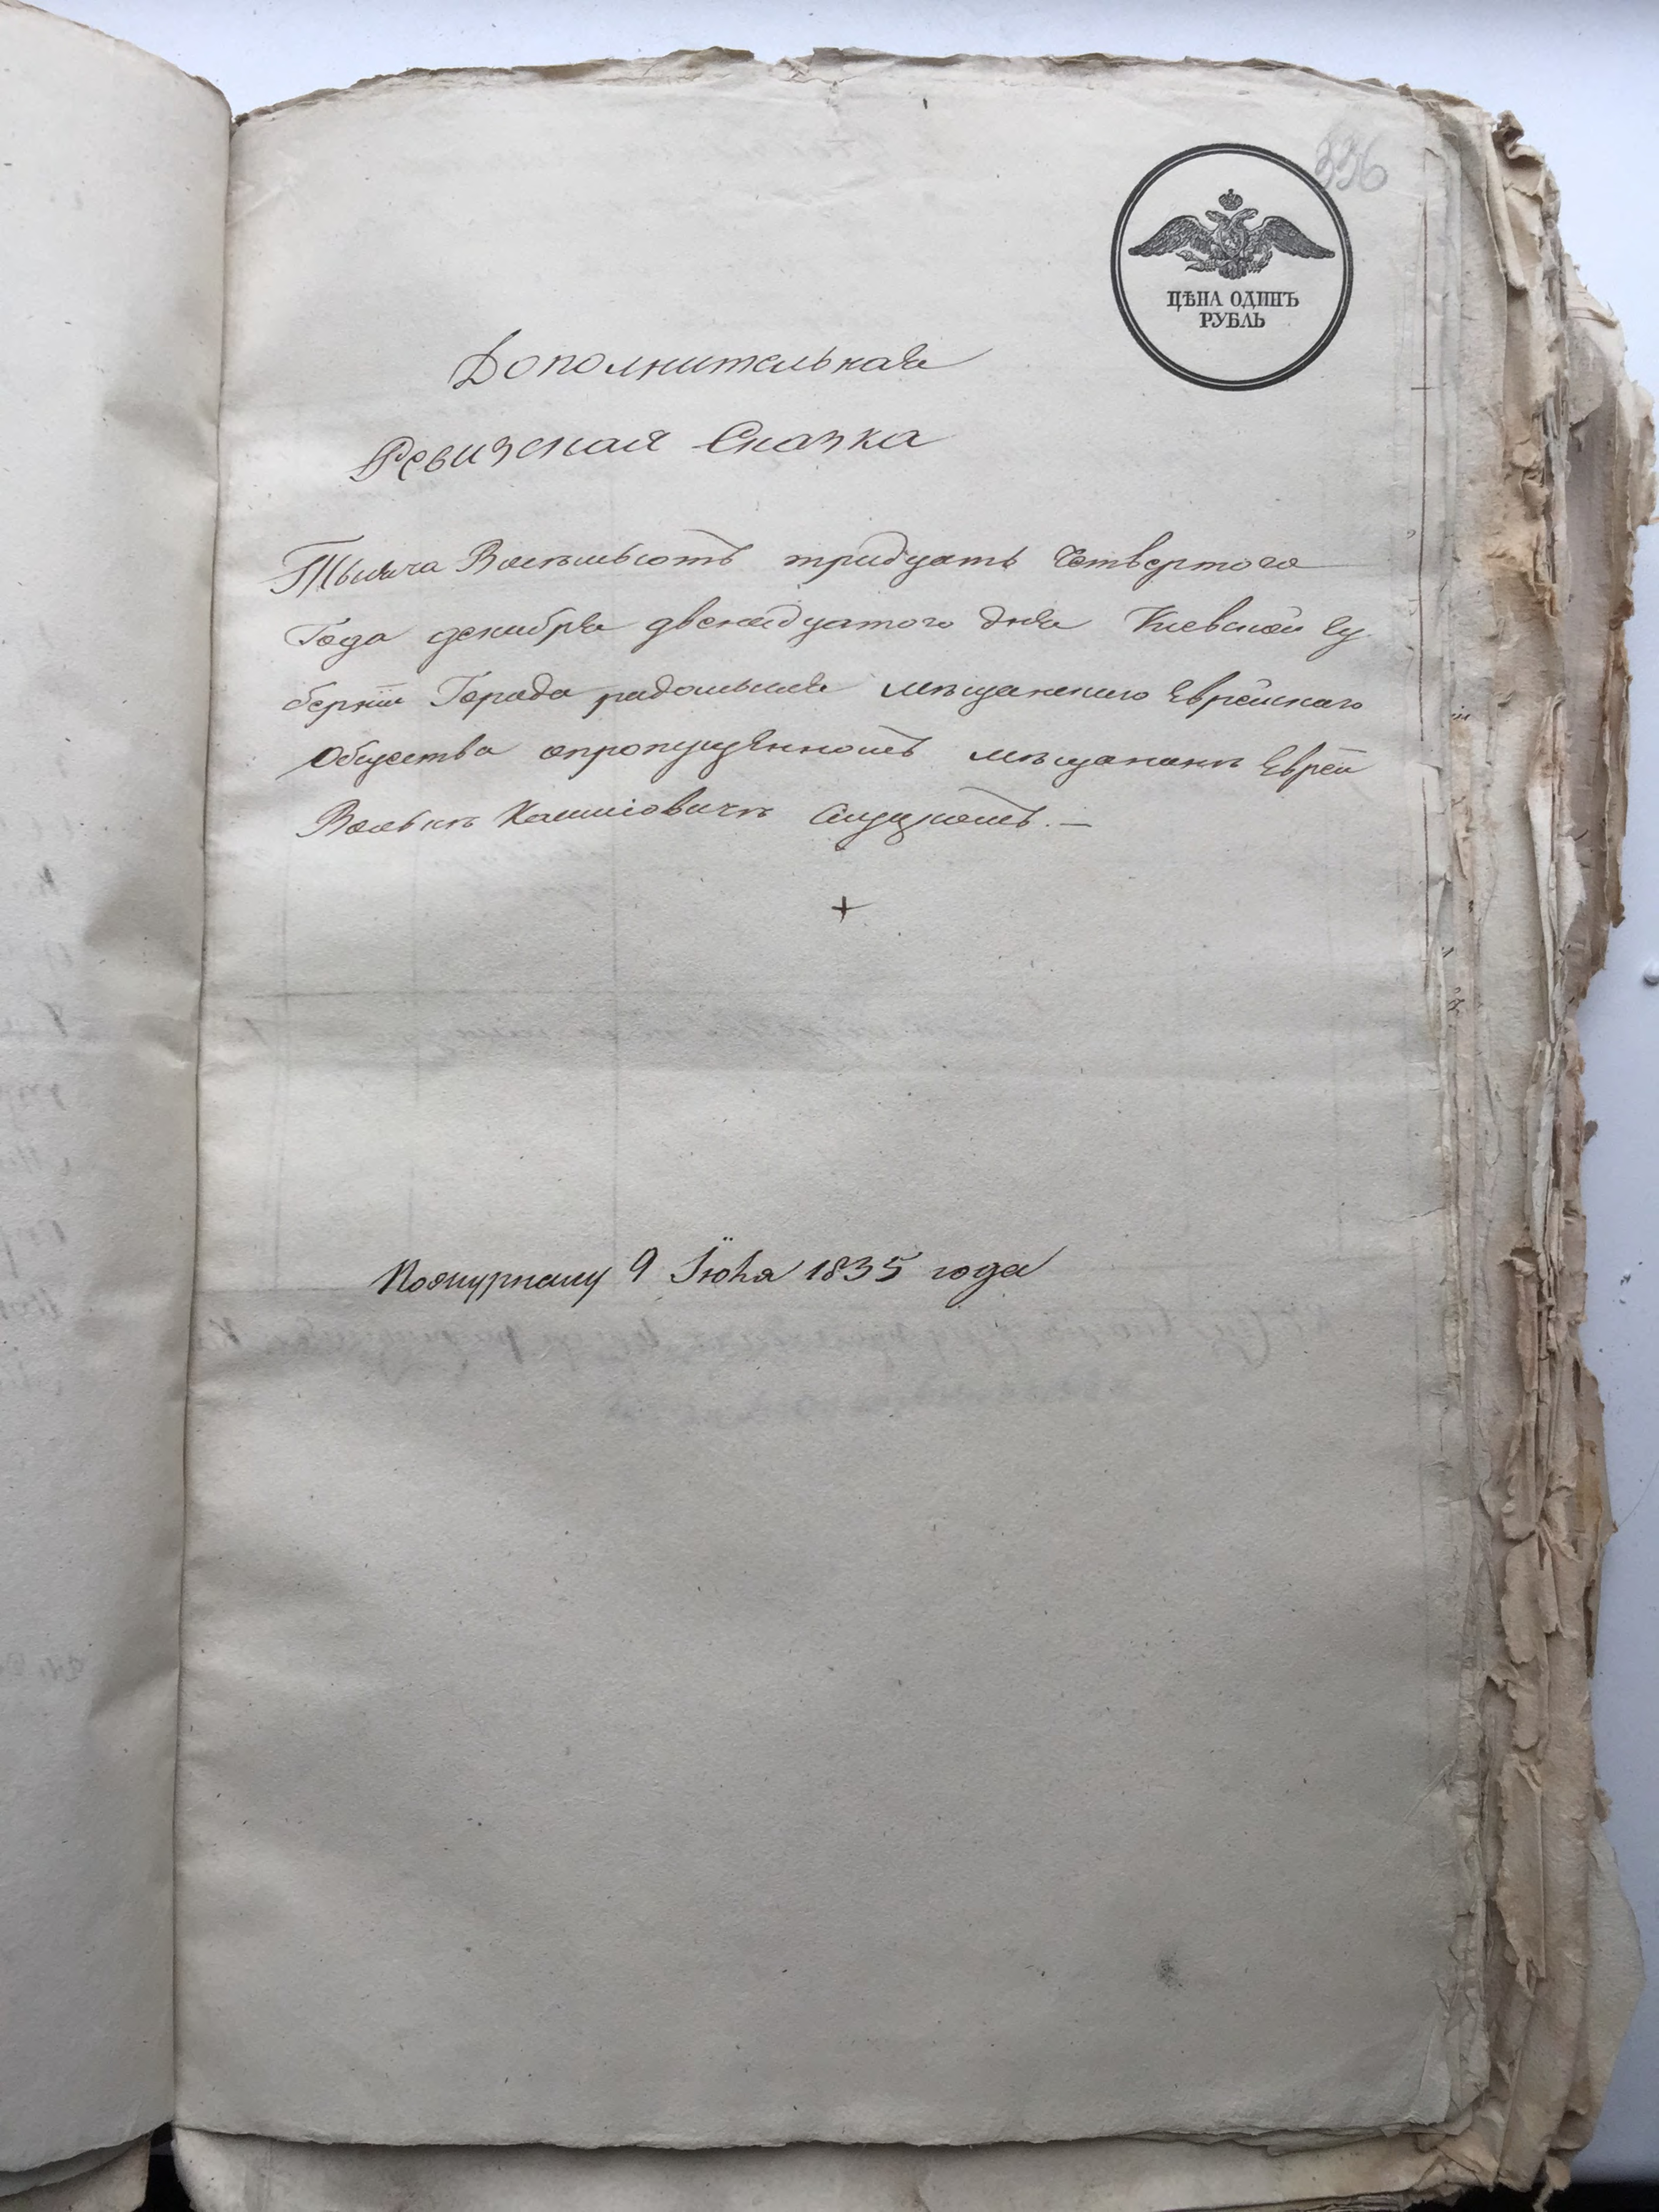 336
ЦѢНА ОДИНЪ
РУБЛЬ
Дополнительная
Ревизская Сказка
Тысяча Восемьсотъ тридцать Четвертого
Года декабря двенадцатого дня Киевской гу
бернiи Города радомысля мѣщанского Еврейскаго
Общества опропущенномъ мѣщанинѣ Еврѣи
Волькѣ Слуцкомъ. —
+
9 Iюня 1835 года